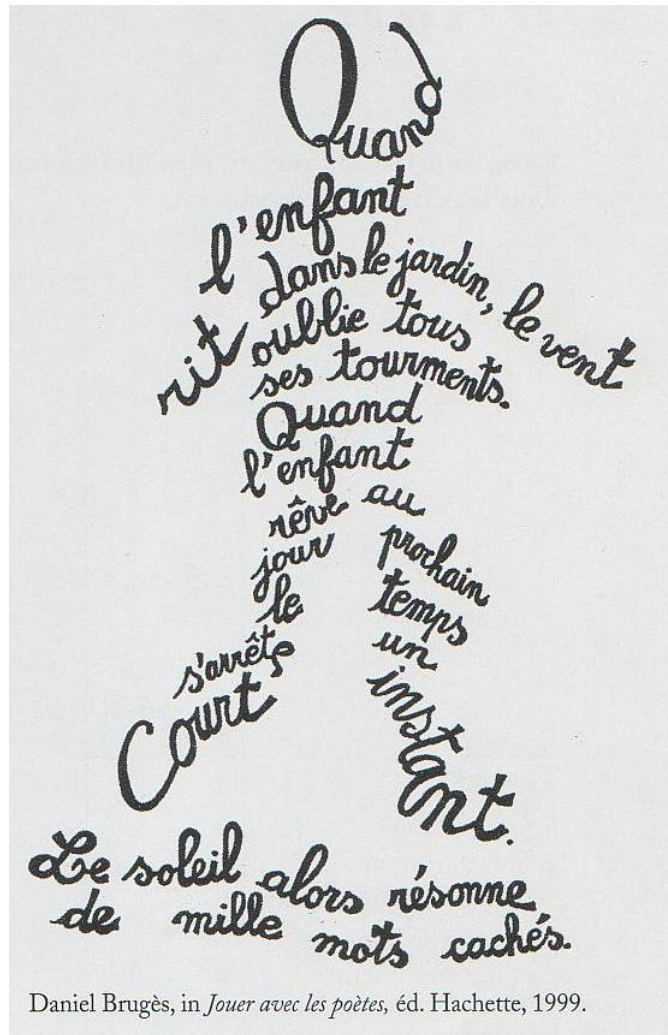 Quand
l'enfant
rit dans le jardin, le vent
oublie tous
ses tourments.
Quand
l'enfant
rêve au
jour prochain
le temps
s'arrête un
Court instant.
Le soleil alors résonne
de mille mots cachés.
Daniel Brugès, in Jouer avec les poètes, éd. Hachette, 1999.